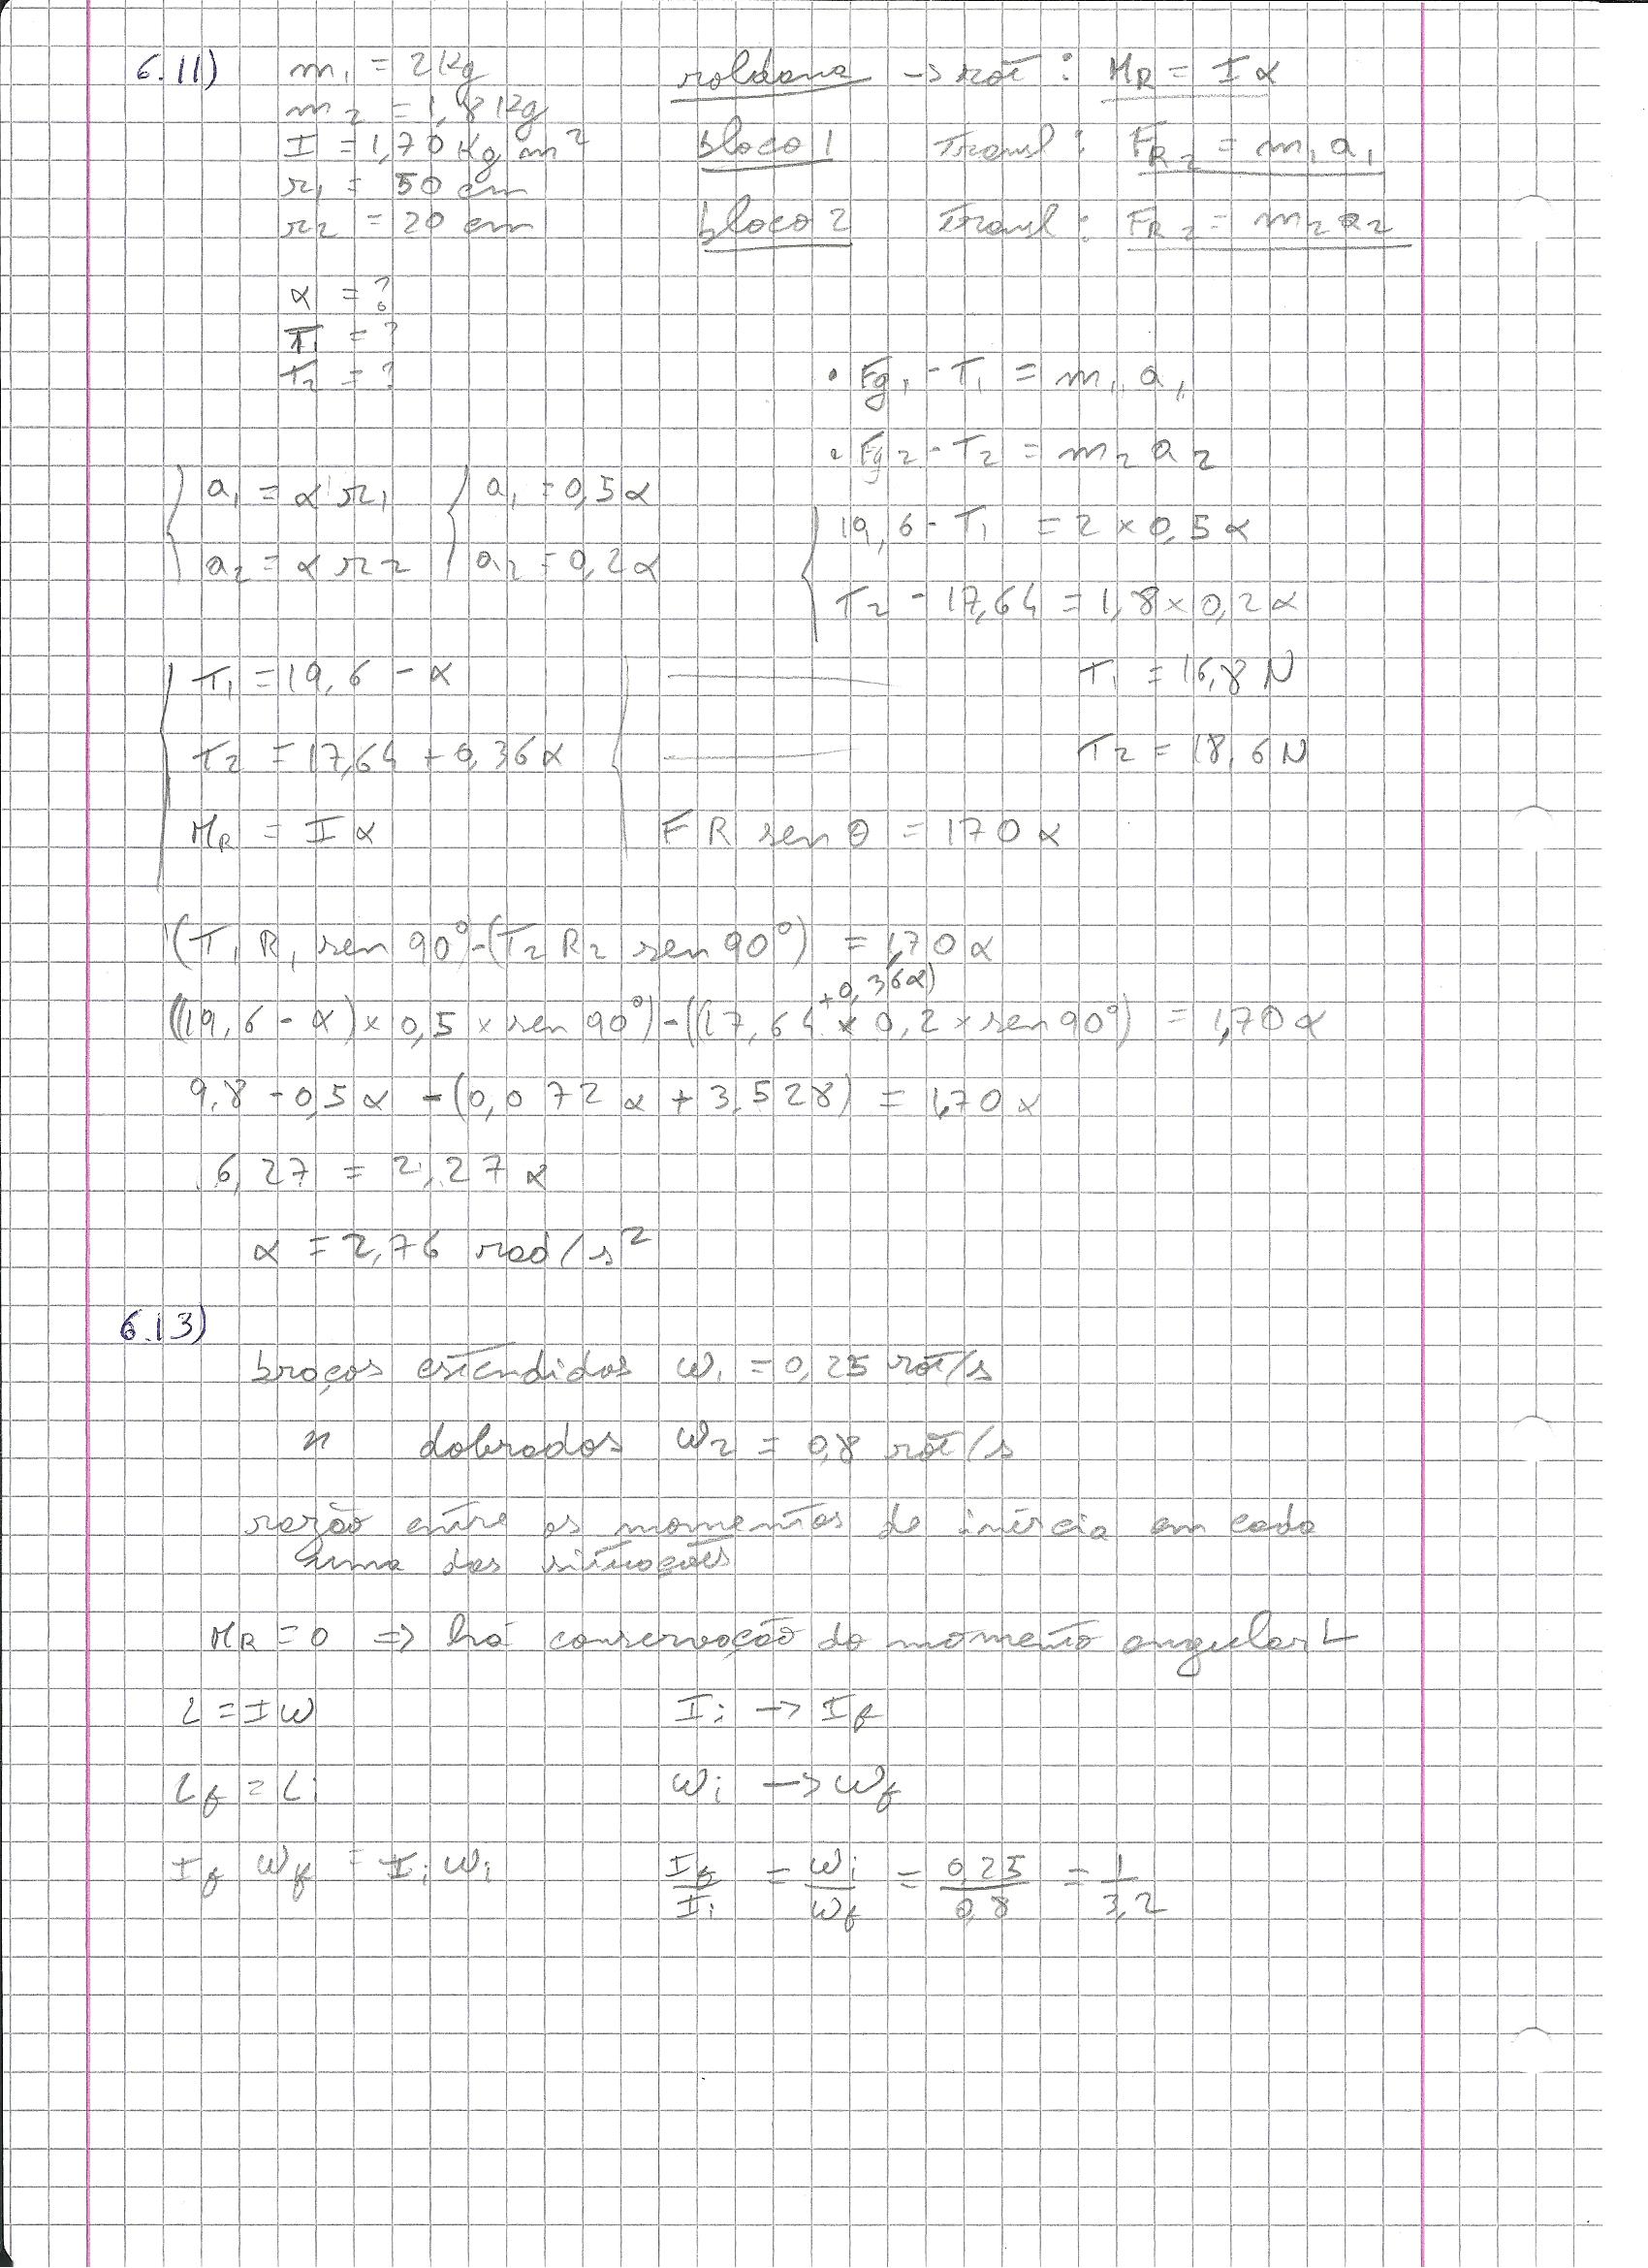 6.11) m₁ = 2 Kg
m₂ = 1,8 Kg
I = 1,70 Kg m²
r₁ = 50 cm
r₂ = 20 cm
roldana -> rot : M_R = I α
bloco 1 Transl : F_R₂ = m₁ a₁
bloco 2 Transl : F_R₂ = m₂ a₂
α = ?
T₁ = ?
T₂ = ?
• Fg₁ - T₁ = m₁ a₁
• Fg₂ - T₂ = m₂ a₂
{ a₁ = α r₁ { a₁ = 0,5 α
a₂ = α r₂ a₂ = 0,2 α
{ 19,6 - T₁ = 2 × 0,5 α
T₂ - 17,64 = 1,8 × 0,2 α
{ T₁ = 19,6 - α { ——— T₁ = 16,8 N
T₂ = 17,64 + 0,36 α ——— T₂ = 18,6 N
M_R = I α F R sen θ = 170 α
(T₁ R₁ sen 90º - (T₂ R₂ sen 90º) = 1,70 α
+0,36α)
((19,6 - α) × 0,5 × sen 90º) - ((17,64 × 0,2 × sen 90º) = 1,70 α
9,8 - 0,5 α - (0,072 α + 3,528) = 1,70 α
6,27 = 2,27 α
α = 2,76 rad/s²
6.13)
braços estendidos ω₁ = 0,25 rot/s
" dobrados ω₂ = 0,8 rot/s
razão entre os momentos de inércia em cada
uma das situações
M_R = 0 => há conservação do momento angular L
L = I ω I_i -> I_f
L_f = L_i ω_i -> ω_f
I_f ω_f = I_i ω_i I_f/I_i = ω_i/ω_f = 0,25/0,8 = 1/3,2